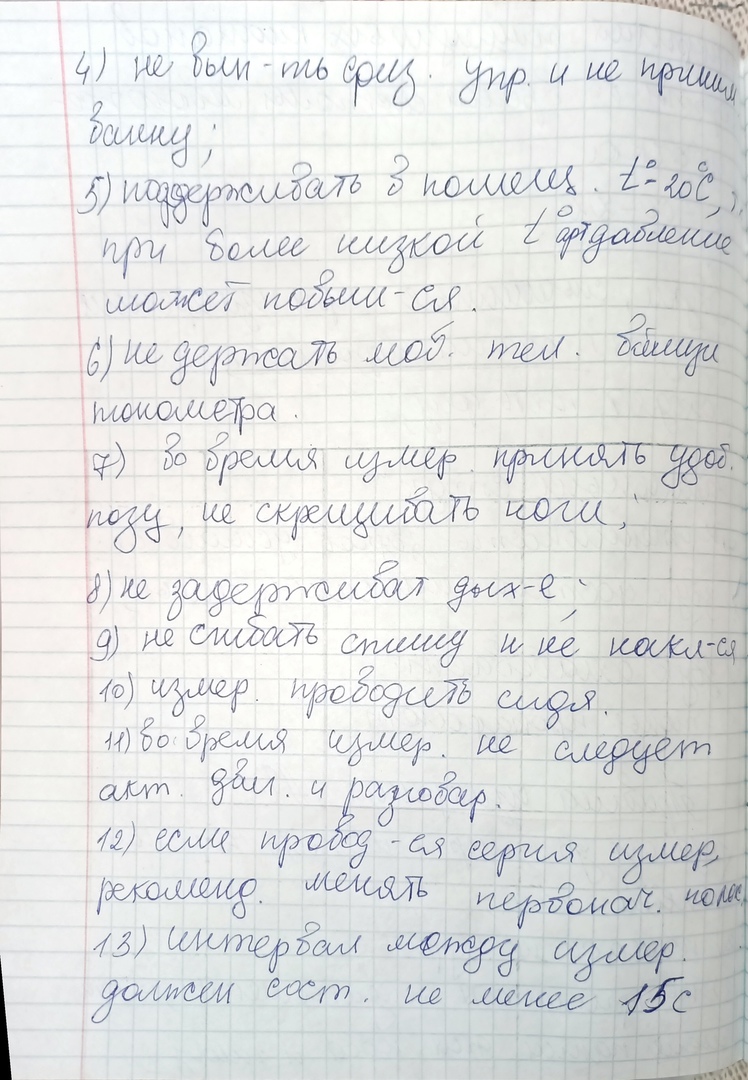 4) не вып-ть физ. упр. и не приним
ванну;
5) поддерживать в помещ. t°-20°C,
при более низкой t° арт давление
может повыш-ся.
6) не держать моб. тел. вблизи
тонометра.
7) во время измер. принять удоб.
позу, не скрещивать ноги;
8) не задерживат дых-е;
9) не сгибать спину и не накл-ся
10) измер. проводить сидя.
11) во время измер. не следует
акт. двиг. и разговар.
12) если провод-ся серия измер,
рекоменд. менять первонач. полож
13) интервал между измер.
должен сост. не менее 15с